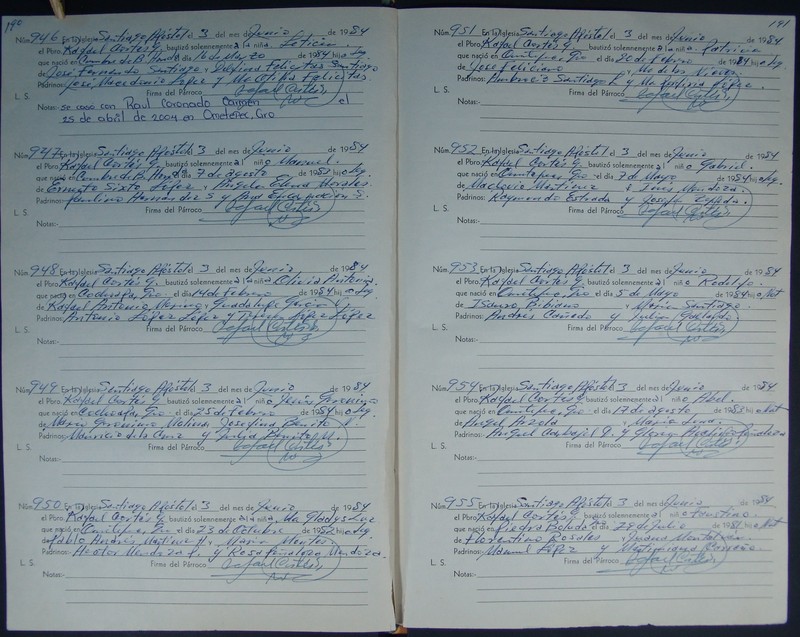 190
Núm. 946 En la Iglesia Santiago Apóstol el 3 del mes de Junio de 1984
el Pbro. Rafael Cortés G. bautizó solemnemente a la niña Leticia
que nació en el día 16 de Mayo
de José Fernando Santiago y Felicitas Santiago
Padrinos: José López y Ma Otilia Felicitas
Firma del Párroco Rafael Cortés
L. S.
Notas: se casó con Raúl Coronado Carmen el
25 de abril de 2004 en Ometepec, Gro
Núm. 947 En la Iglesia Santiago Apóstol el 3 del mes de Junio de 1984
el Pbro. Rafael Cortés G. bautizó solemnemente al niño Manuel.
que nació en el día 7 de agosto de 1983 hijo Leg.
de Ernesto Sixto López y Angela Elena Morales
Padrinos: Paulino Hernández S y Ana Encarnación S.
Firma del Párroco Rafael Cortés
L. S.
Notas:
Núm. 948 En la Iglesia Santiago Apóstol el 3 del mes de Junio de 1984
el Pbro. Rafael Cortés G. bautizó solemnemente a la niña Olivia Antonia
que nació en Cochoapa, Gro el día 14 de febrero de 1984 hija Leg.
de Rafael Antonio y Guadalupe
Padrinos: Antonio López López y López López
Firma del Párroco Rafael Cortés
L. S.
Notas:
Núm. 949 En la Iglesia Santiago Apóstol el 3 del mes de Junio de 1984
el Pbro. Rafael Cortés G. bautizó solemnemente al niño Jesús Geronimo
que nació en Cochoapa, Gro el día 25 de febrero de 1984 hijo Leg.
de Mario Geronimo Molina y Josefina Benito
Padrinos: Mauricio de la Cruz y Benito M.
Firma del Párroco Rafael Cortés
L. S.
Notas:
Núm. 950 En la Iglesia Santiago Apóstol el 3 del mes de Junio de 1984
el Pbro. Rafael Cortés G. bautizó solemnemente a la niña Ma Gladys Luz
que nació en Gro el día 23 de Octubre de 1982 hija Leg.
de Pablo Andrés Molina H. y María Montes
Padrinos: Hector Mendoza P. y Rosa Peñaloza Mendoza.
Firma del Párroco Rafael Cortés
L. S.
Notas:
191
Núm. 951 En la Iglesia Santiago Apóstol el 3 del mes de Junio de 1984
el Pbro. Rafael Cortés G. bautizó solemnemente a la niña Patricia
que nació en Gro el día 20 de febrero de 1984 hija Leg.
de José Feliciano y Ma de los Nieves
Padrinos: Ambrocio Santiago L y Ma López.
Firma del Párroco Rafael Cortés
L. S.
Notas:
Núm. 952 En la Iglesia Santiago Apóstol el 3 del mes de Junio de 1984
el Pbro. Rafael Cortés G. bautizó solemnemente al niño Gabriel.
que nació en Gro el día 7 de Mayo de 1984 hijo Leg.
de Macdovio Martínez y Inés Mendoza.
Padrinos: Raymundo Estrada y
Firma del Párroco Rafael Cortés
L. S.
Notas:
Núm. 953 En la Iglesia Santiago Apóstol el 3 del mes de Junio de 1984
el Pbro. Rafael Cortés G. bautizó solemnemente al niño Rodolfo.
que nació en Gro el día 5 de Mayo de 1984 hijo Nat
de Isauro Bibiano y María Santiago
Padrinos: Andrés y Julia
Firma del Párroco Rafael Cortés
L. S.
Notas:
Núm. 954 En la Iglesia Santiago Apóstol el 3 del mes de Junio de 1984
el Pbro. Rafael Cortés G. bautizó solemnemente al niño Abel.
que nació en Gro el día 17 de agosto de 1983 hijo Nat
de Angel Arzola y María Luna.
Padrinos: Angel Carbajal P. y Gloria
Firma del Párroco Rafael Cortés
L. S.
Notas:
Núm. 955 En la Iglesia Santiago Apóstol el 3 del mes de Junio de 1984
el Pbro. Rafael Cortés G. bautizó solemnemente al niño Faustino.
que nació en Piedra Boluda el día 29 de Julio de 1981 hijo Nat
de Florentino Rosales y Juana Montalván
Padrinos: Manuel López y
Firma del Párroco Rafael Cortés
L. S.
Notas: